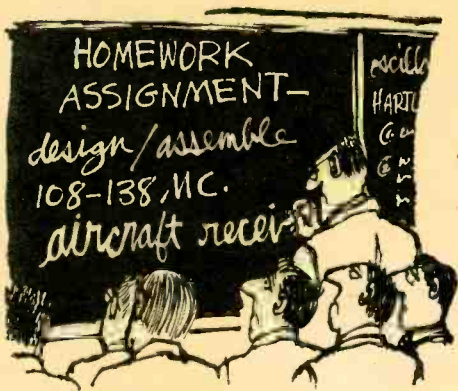 HOMEWORK
ASSIGNMENT—
design/assemble
108-138 MC.
aircraft recei
oscillo
HARTL